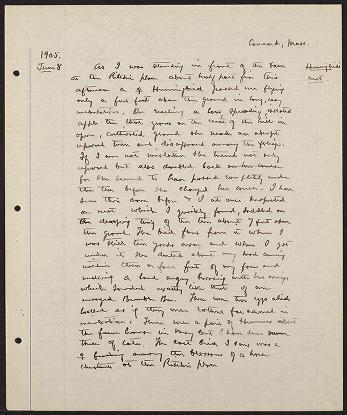 Concord, Mass.
1905.
June 8
Hummingbird's
nest.
As I was standing in front of the barn
at the Ritchie place about half past five this
afternoon a ♀ Hummingbird passed me flying
only a few feet above the ground in long, easy
undulations. On reaching a low spreading isolated
apple tree that grows on the crest of the hill in
open, cultivated ground she made an abrupt
upward turn and disappeared among the foliage.
If I am not mistaken she turned not only
upward but also doubled back on her course
for she seemed to have passed completely under
the tree before she changed her course. I have
seen this done before & I at once suspected
a nest which I quickly found, saddled on
the drooping twig of the tree about 7 feet above
the ground. The bird flew from it when I
was still ten yards away and when I got
under it she darted about my head coming
within three or four feet of my face and
making a loud angry buzzing with her wings
which sounded exactly like that of an
enraged Bumble Bee. There were two eggs which
looked as if they were rather far advanced in
incubation. There were a pair of Hummers about
the farm house in May but I have seen
them of late. The last bird I saw was a
feeding among the blossoms of a horse
chestnut at the Ritchie place